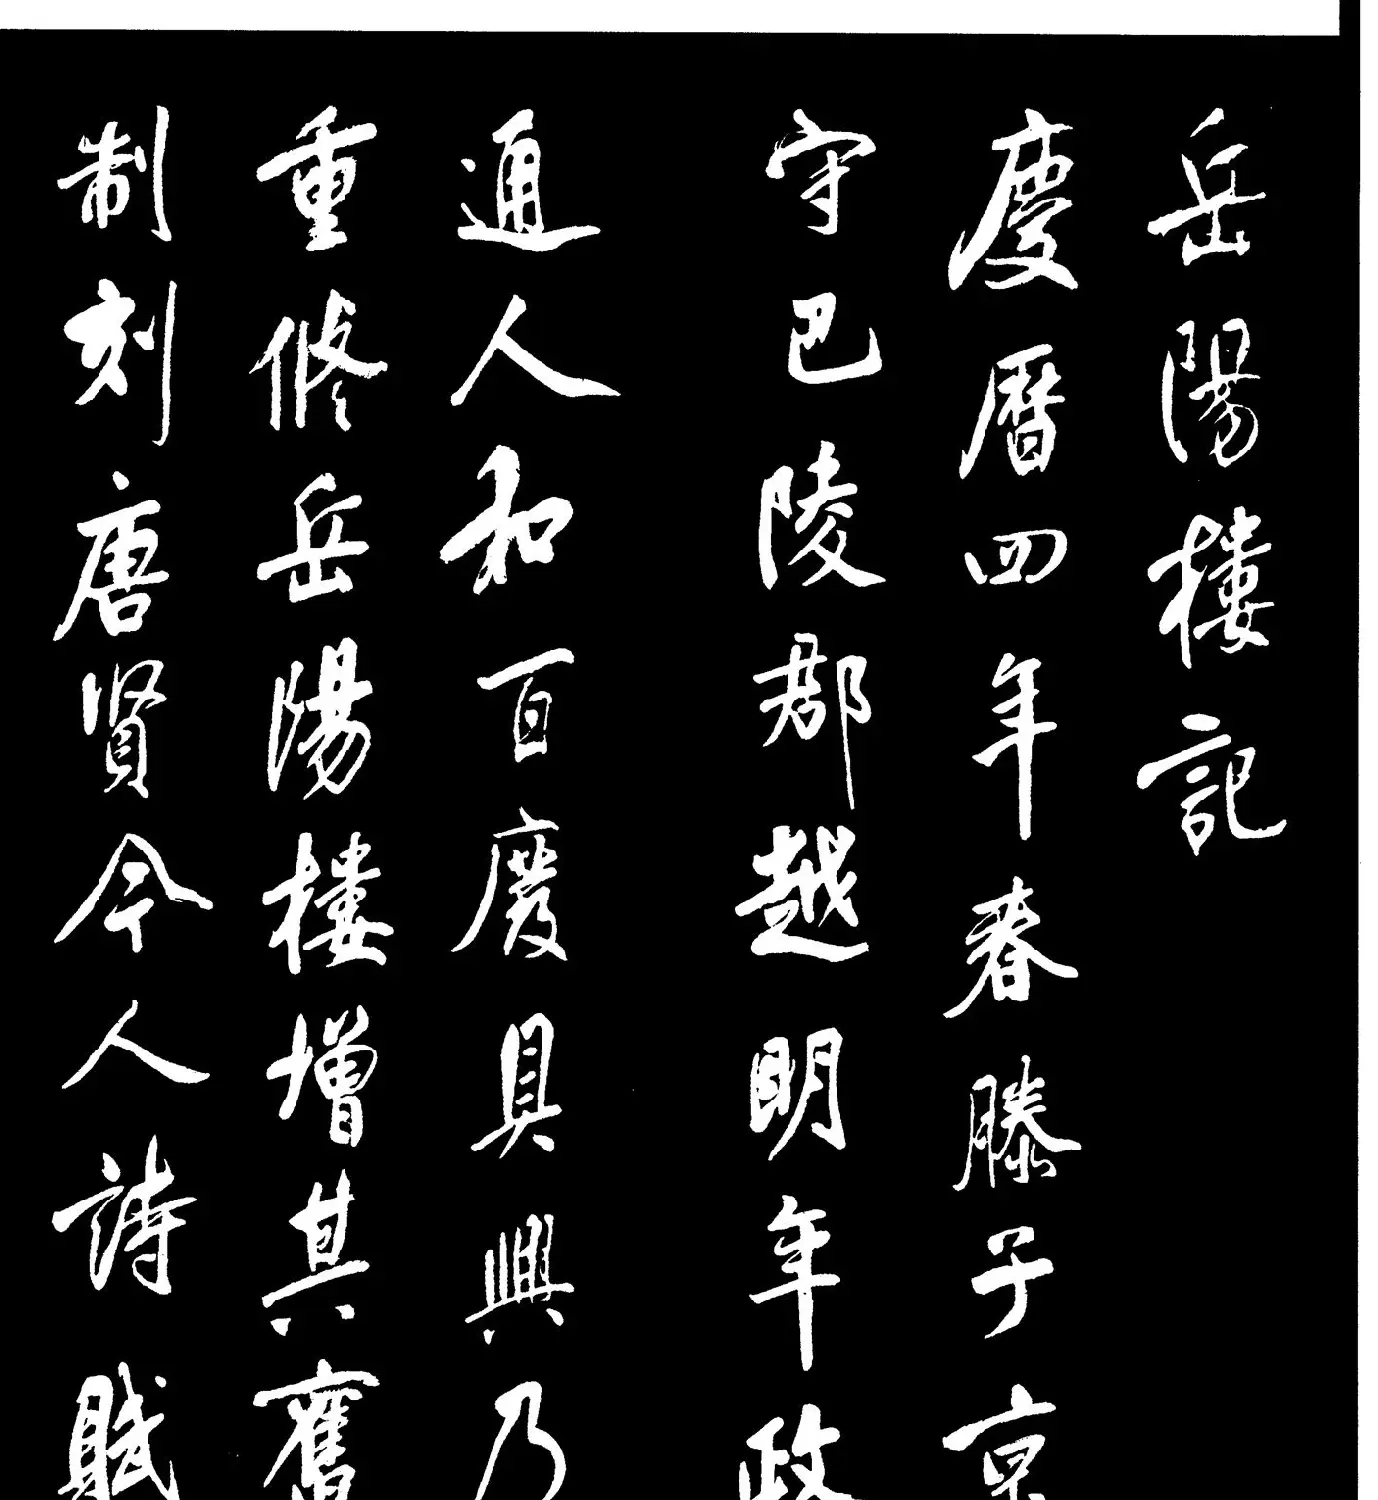 岳陽樓記
慶曆四年春滕子京
守巴陵郡越明年政
通人和百廢具興乃
重脩岳陽樓增其舊
制刻唐賢今人詩賦